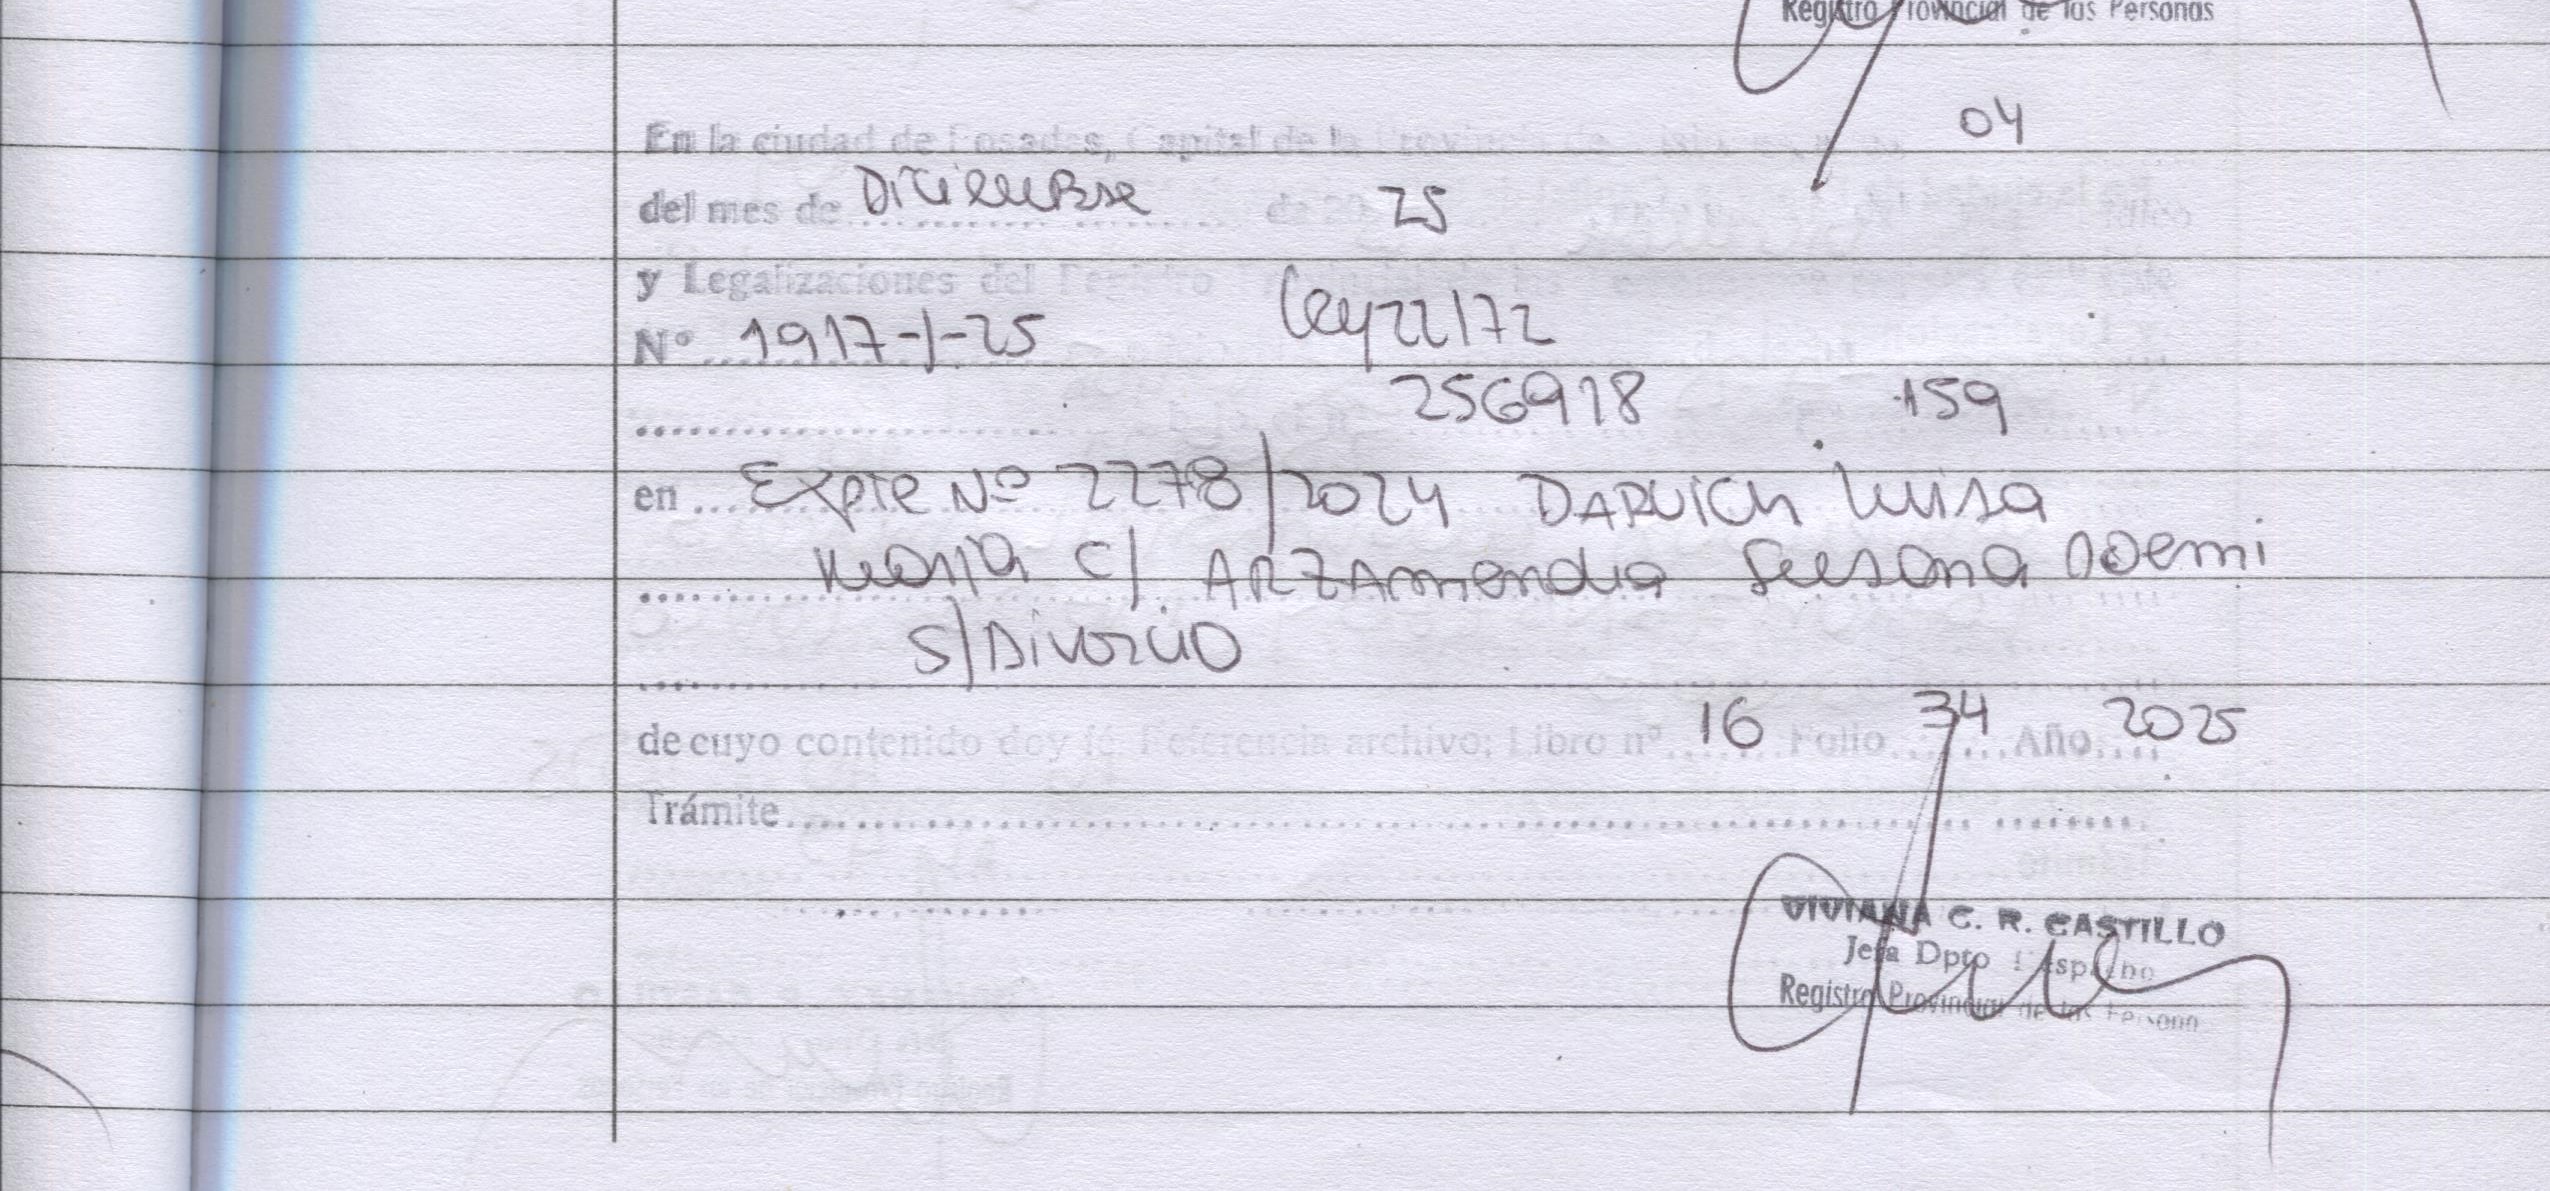 Registro Provincial de las Personas
04
En la ciudad de Posadas, Capital de la Provincia de
del mes de Diciembre de 20 25
y Legalizaciones del Registro
Nº 1917-1-25 Ley 22172
256918 159
en Expte Nº 2278/2024 DARVICH Luisa
Maria c/ ARZAmendia Susana Noemi
S/Divorcio
de cuyo contenido doy fé. Referencia archivo: Libro nº 16 Folio 34 Año 2025
Trámite
VIVIANA C. R. CASTILLO
Jefa Dpto Despacho
Registro Provincial de las Persona